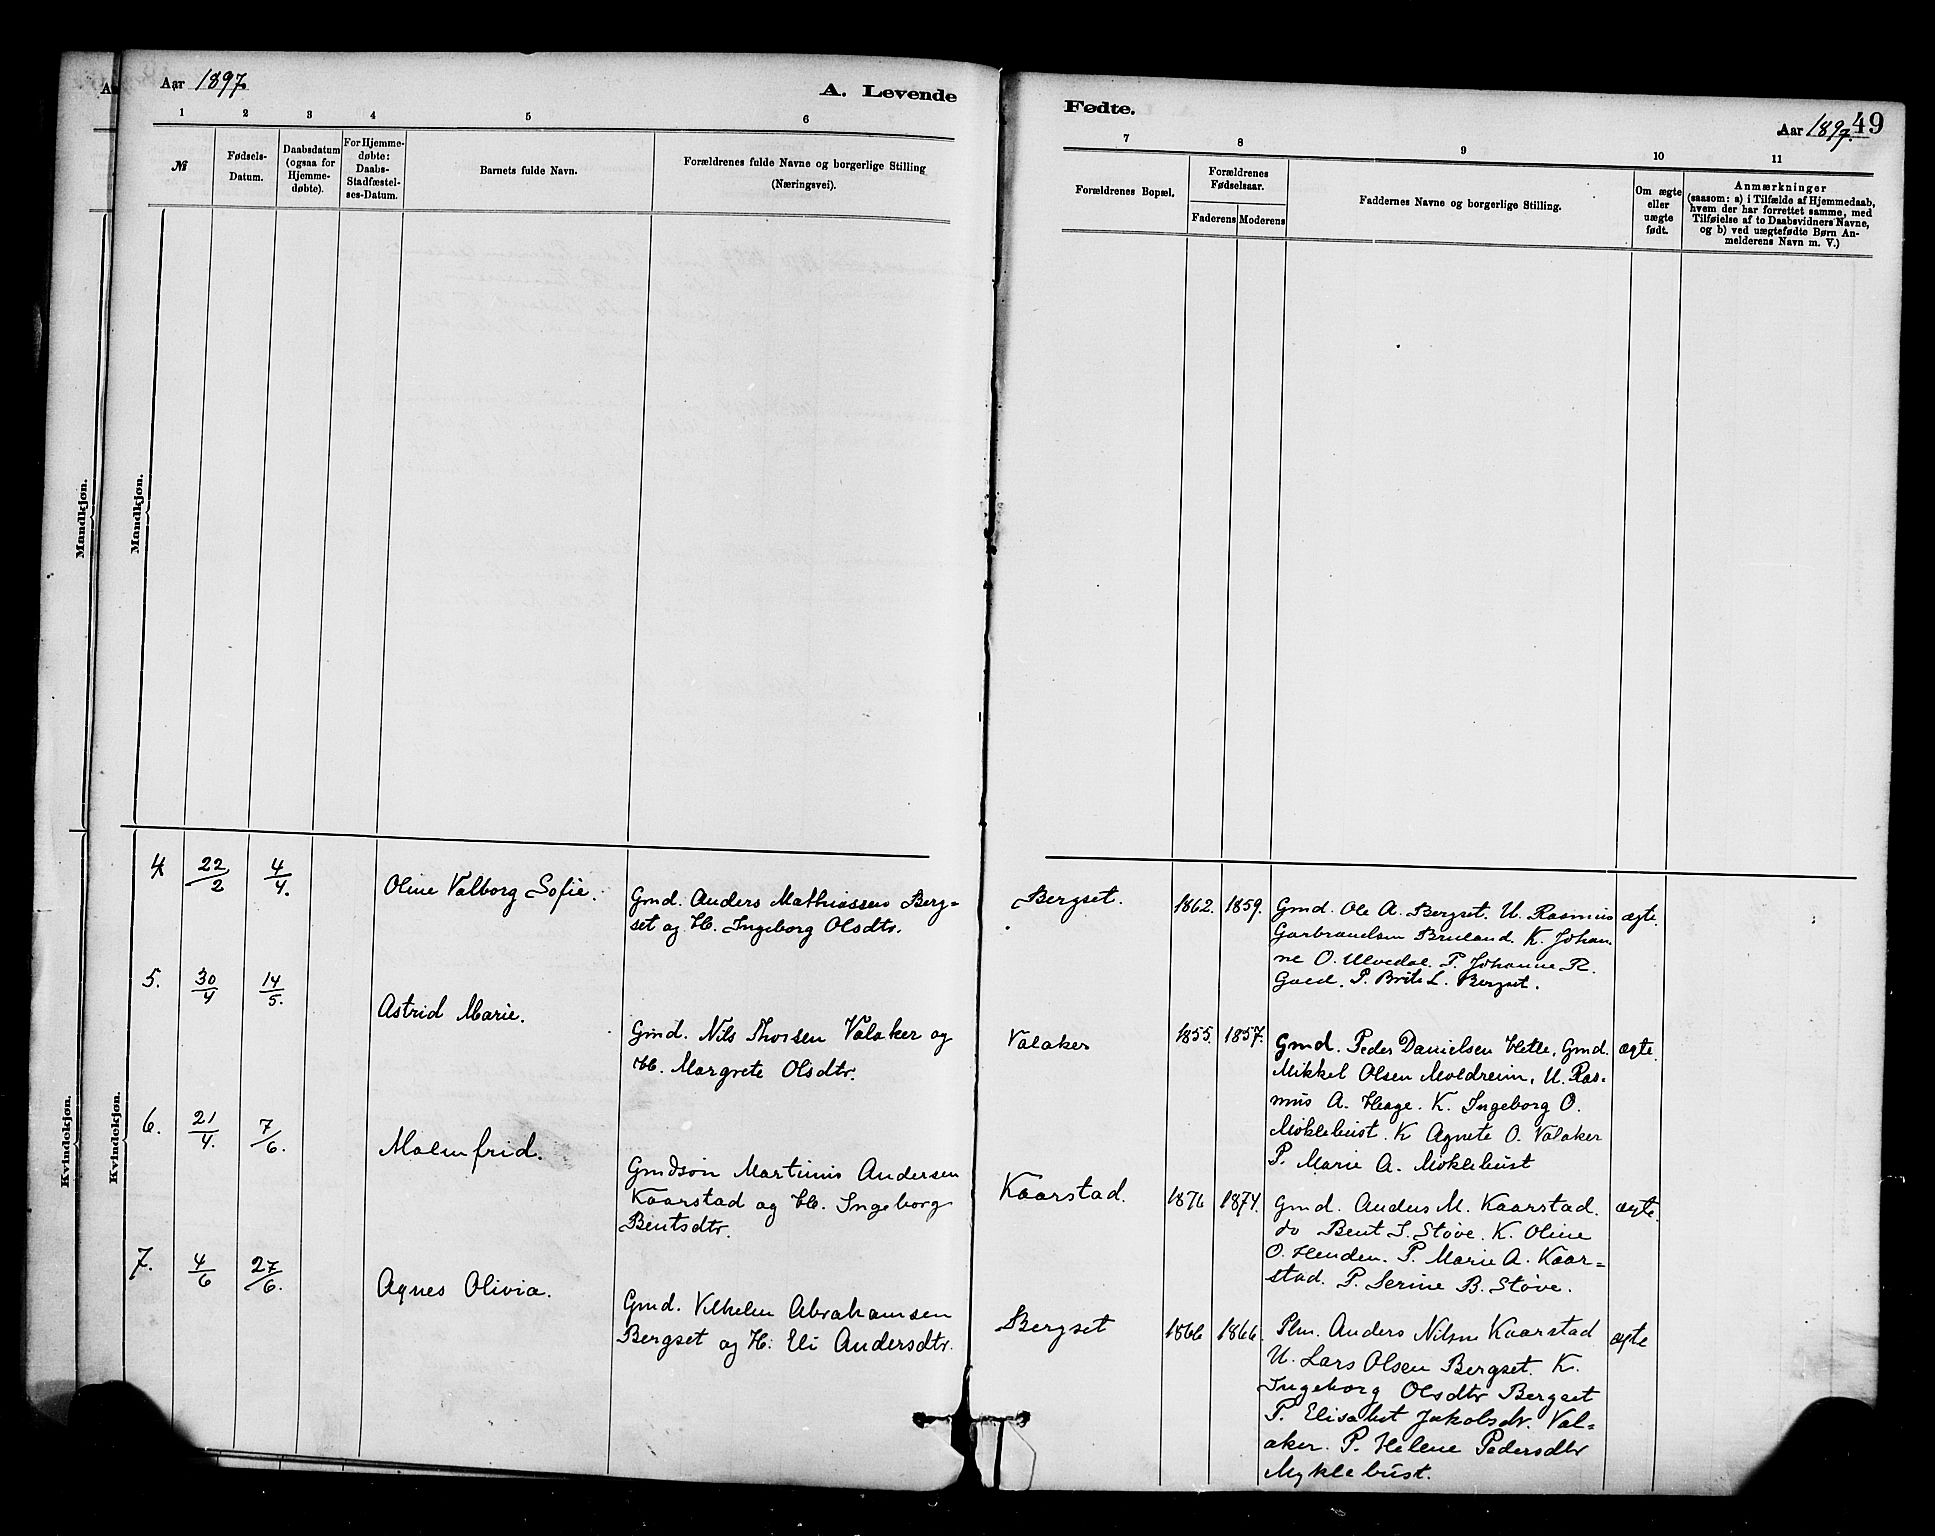 Aar 1897.
A. Levende
Fødte.
Aar 1897.
49
1 2 3 4 5 6 7 8 9 10 11
№
Fødsels-
Datum.
Daabsdatum
(ogsaa for
Hjemme-
døbte).
For Hjemme-
døbte:
Daabs-
Stadfæstel-
ses-Datum.
Barnets fulde Navn.
Forældrenes fulde Navne og borgerlige Stilling
(Næringsvei).
Forældrenes Bopæl.
Forældrenes
Fødselsaar.
Faderens Moderens
Faddernes Navne og borgerlige Stilling.
Om ægte
eller
uægte
født.
Anmærkninger
(saasom: a) i Tilfælde af Hjemmedaab,
hvem der har forrettet samme, med
Tilføielse af to Daabsvidners Navne,
og b) ved uægtefødte Børn An-
melderens Navn m. V.)
Mandkjøn.
Mandkjøn.
Kvindekjøn.
Kvindekjøn.
4 22/2 4/4.
Oline Valborg Sofie.
Gmd. Anders Mathiassen Berg=
set og H. Ingeborg Olsdtr.
Bergset.
1862. 1859.
Gmd. Ole A. Bergset. U. Rasmus
Garbrandsen Bruland. K. Johan
ne O. Ulvedal. P. Johanne R.
Gaed. P. Brite L. Bergset.
ægte.
5. 30/4 14/5.
Astrid Marie.
Gmd. Nils Thorsen Valaker og
H. Margrete Olsdtr.
Valaker
1855. 1857.
Gmd. Peder Danielsen Hetle, Gmd.
Mikkel Olsen Moldreim, U. Ras-
mus A. Hage. K. Ingeborg O.
Møklebust. K Agnete O. Valaker
P. Marie A. Møklebust
ægte.
6. 21/4. 7/6.
Malmfrid.
Gmdsøn Martinus Andersen
Kaarstad og H. Ingeborg
Bentsdtr.
Kaarstad.
1876 1874.
Gmd. Anders M. Kaarstad.
do Bent S. Støve. K. Oline
O. Henden. P. Marie A. Kaar=
stad. P. Serine B. Støve.
ægte.
7. 4/6 27/6.
Agnes Olivia.
Gmd. Vilhelm Abrahamsen
Bergset og H: Eli Andersdtr.
Bergset
1866 1866.
Plm. Anders Nilsen Kaarstad
U. Lars Olsen Bergset. K.
Ingeborg Olsdtr Bergset
P. Elisabet Jakobsdr. Val=
aker. P. Helene Pedersdtr
Myklebust.
ægte